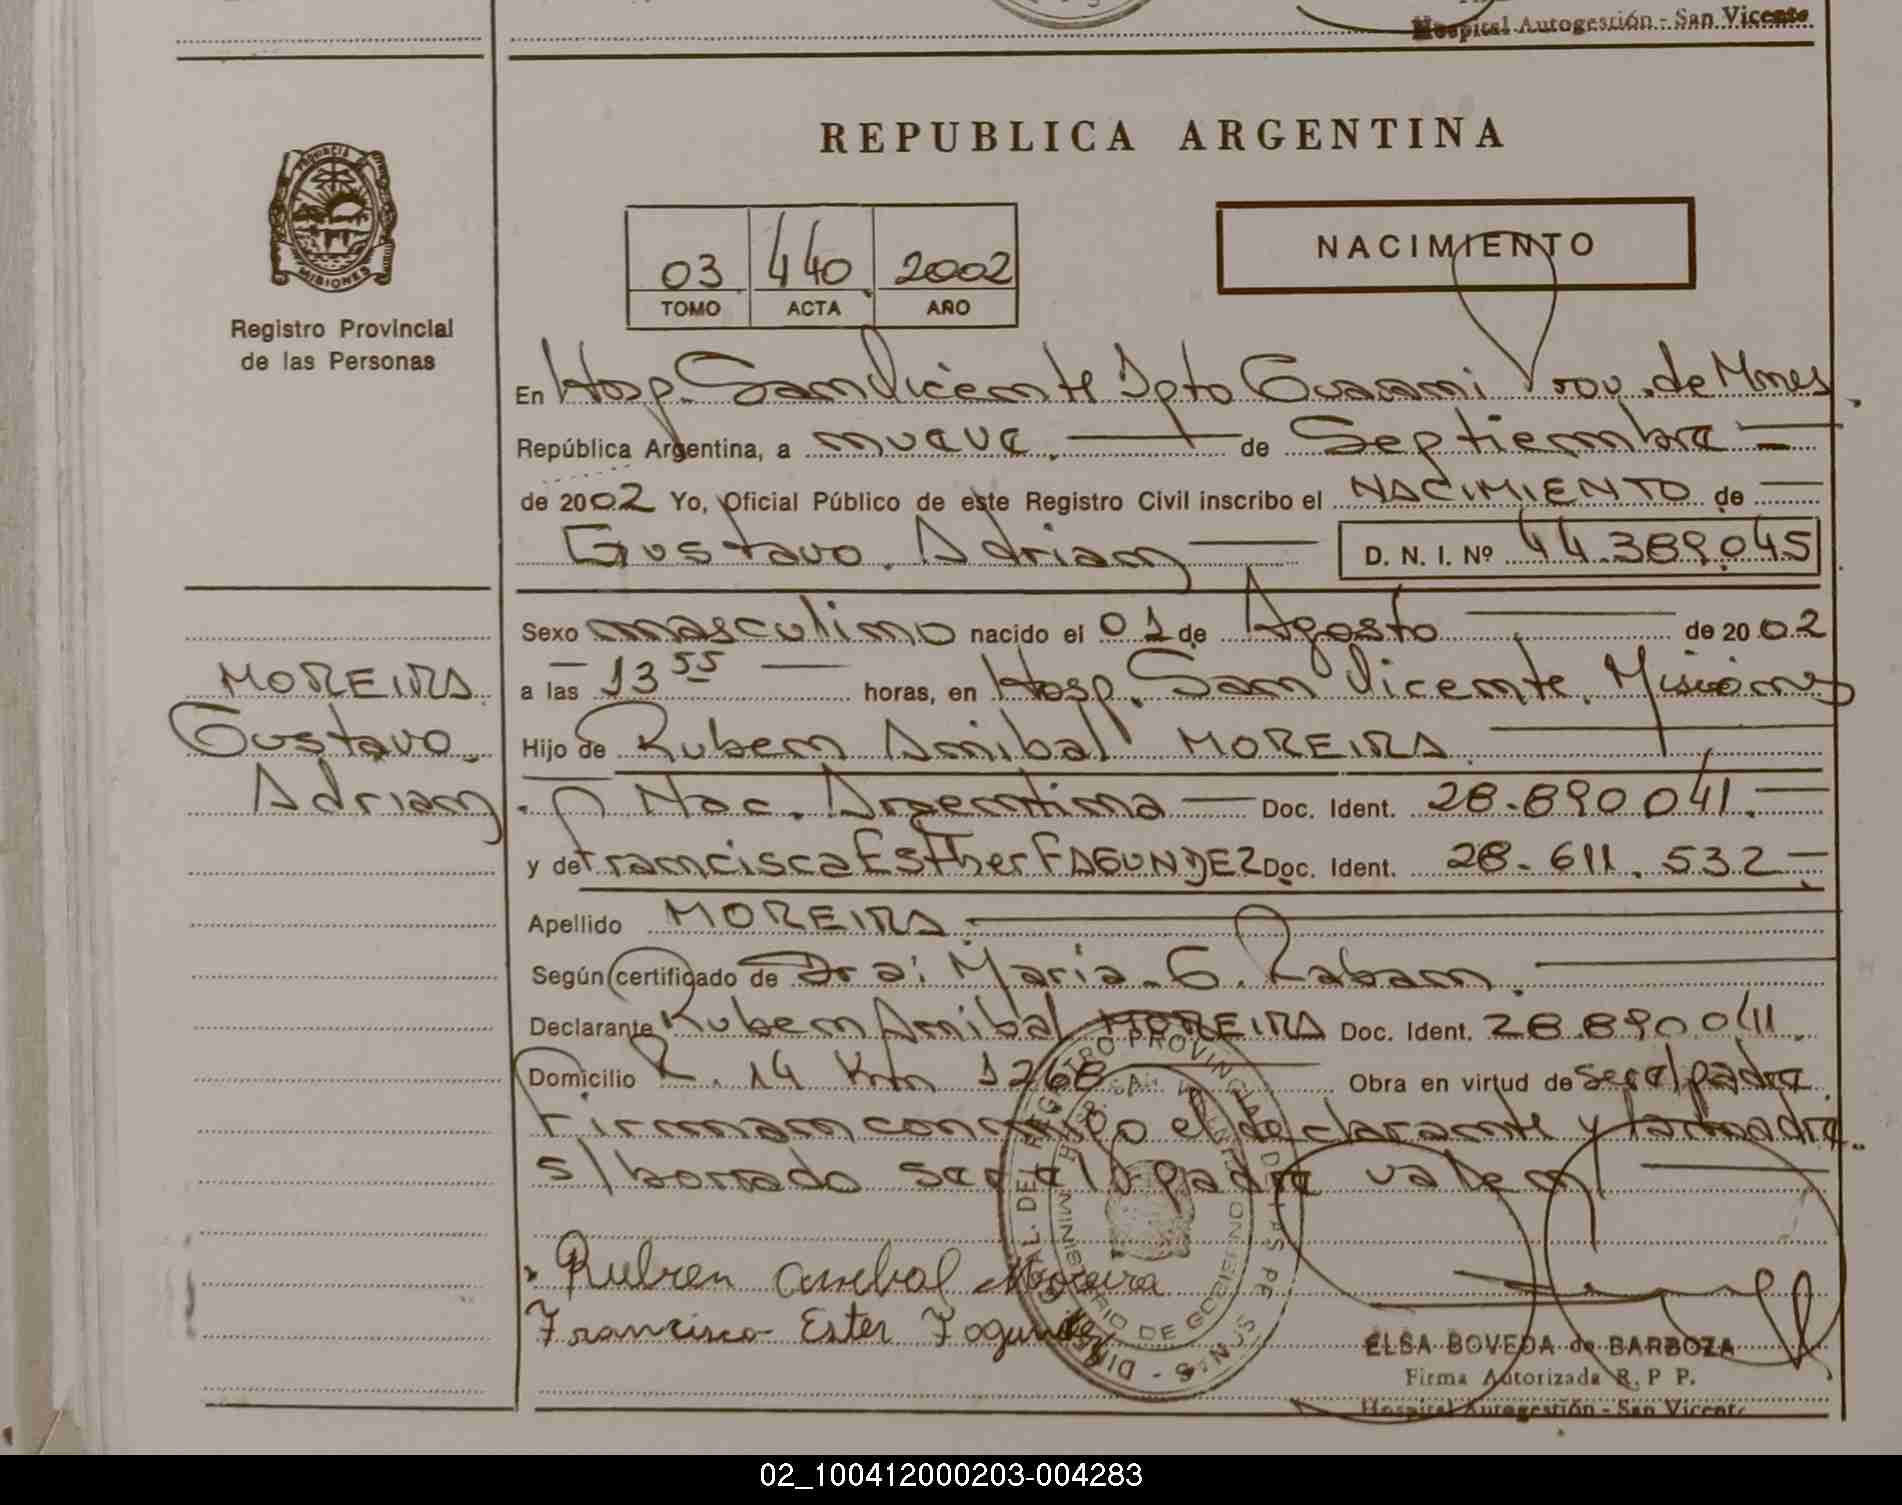 Hospital Autogestión - San Vicente
REPUBLICA ARGENTINA
PROVINCIA DE
MISIONES
Registro Provincial
de las Personas
03 440 2002
TOMO ACTA AÑO
NACIMIENTO
En Hosp. San Vicente Dpto Guarani Prov. de Mnes.
República Argentina, a nueve. de Septiembre
de 2002 Yo, Oficial Público de este Registro Civil inscribo el NACIMIENTO de
Gustavo Adrian D. N. I. Nº 44.389.045
Sexo masculino nacido el 01 de Agosto de 2002
a las 13 55 horas, en Hosp. San Vicente. Misiones
MOREIRA
Gustavo
Adrian.
Hijo de Ruben Anibal MOREIRA
Nac. Argentina Doc. Ident. 28.890.041.
y de Francisca Esther FAGUNDEZ Doc. Ident. 28.611.532
Apellido MOREIRA.
Según certificado de Dra: Maria G. Raban.
Declarante Ruben Anibal MOREIRA Doc. Ident. 28.890.041
Domicilio R. 14 Km 1268 Obra en virtud de ser el padre
Firman conmigo el declarante y la madre.
s/borrado ser el padre valen
Ruben Anibal Moreira
Francisca Ester Fagundez
DIREC. GRAL. DEL REGISTRO PROVINCIAL DE LAS PERSONAS
MINISTERIO DE GOBIERNO
ELSA BOVEDA de BARBOZA
Firma Autorizada R. P P.
Hospital Autogestión - San Vicente
02_100412000203-004283